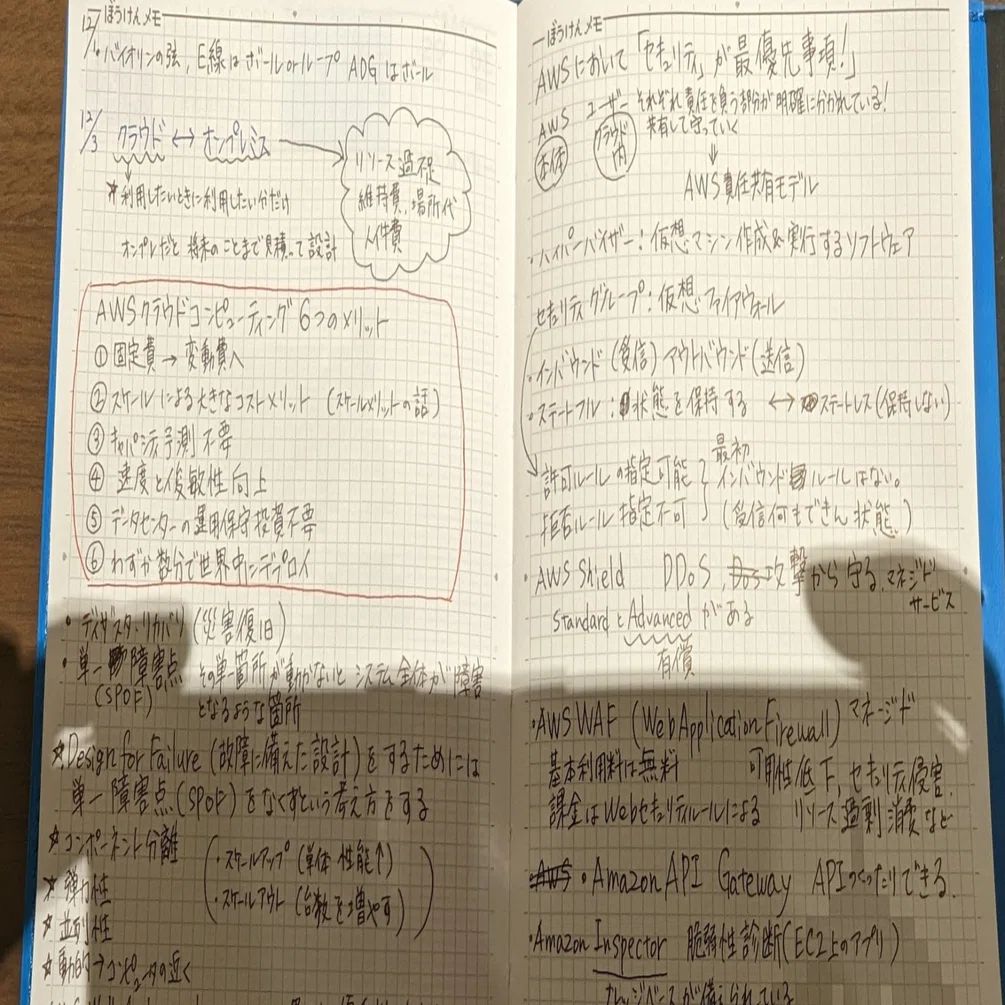 ぼうけんメモ
12/1
・バイオリンの弦, E線はボールorループ ADGはボール
12/3 クラウド ↔ オンプレミス →
リソース過不足
維持費, 場所代
人件費
☆利用したいときに利用したい分だけ
オンプレだと 将来のことまで見積って設計
AWSクラウドコンピューティング 6つのメリット
① 固定費 → 変動費へ
② スケールによる大きなコストメリット (スケールメリットの話)
③ キャパシティ予測 不要
④ 速度と俊敏性向上
⑤ データセンターの運用保守投資不要
⑥ わずか数分で世界中にデプロイ
・ディザスタ・リカバリ (災害復旧)
・単一障害点 その単一箇所が動かないと システム全体が障害
(SPOF) となるような箇所
☆Design for Failure (故障に備えた設計) をするためには
単一障害点 (SPOF) をなくすという考え方をする
☆コンポーネント分離
☆ 弾力性
☆ 並列性
・スケールアップ (単体 性能↑)
・スケールアウト (台数を増やす)
☆ 動的→コンピュータの近く
ぼうけんメモ
AWSにおいて 「セキュリティ」が 最優先事項!」
AWS ユーザー それぞれ責任を負う部分が明確に分かれている!
本体 クラウド内 共有して守っていく
↓
AWS責任共有モデル
・ハイパーバイザー: 仮想マシン作成&実行するソフトウェア
セキュリティグループ: 仮想ファイアウォール
・インバウンド (受信) アウトバウンド (送信)
・ステートフル: 状態を保持する ↔ ステートレス (保持しない)
許可ルールの指定可能
拒否ルール 指定不可
最初
インバウンドルールはない。
(受信何もできん状態)
・AWS Shield DDoS 攻撃から守る, マネジド
サービス
StandardとAdvancedがある
有償
・AWS WAF (Web Application Firewall) マネージド
基本利用料は無料 可用性低下, セキュリティ侵害,
課金はWebセキュリティルールによる リソース過剰消費など
AWS ・Amazon API Gateway APIつくったりできる.
・Amazon Inspector 脆弱性診断 (EC2上のアプリ)
ナレッジベースが備えられている